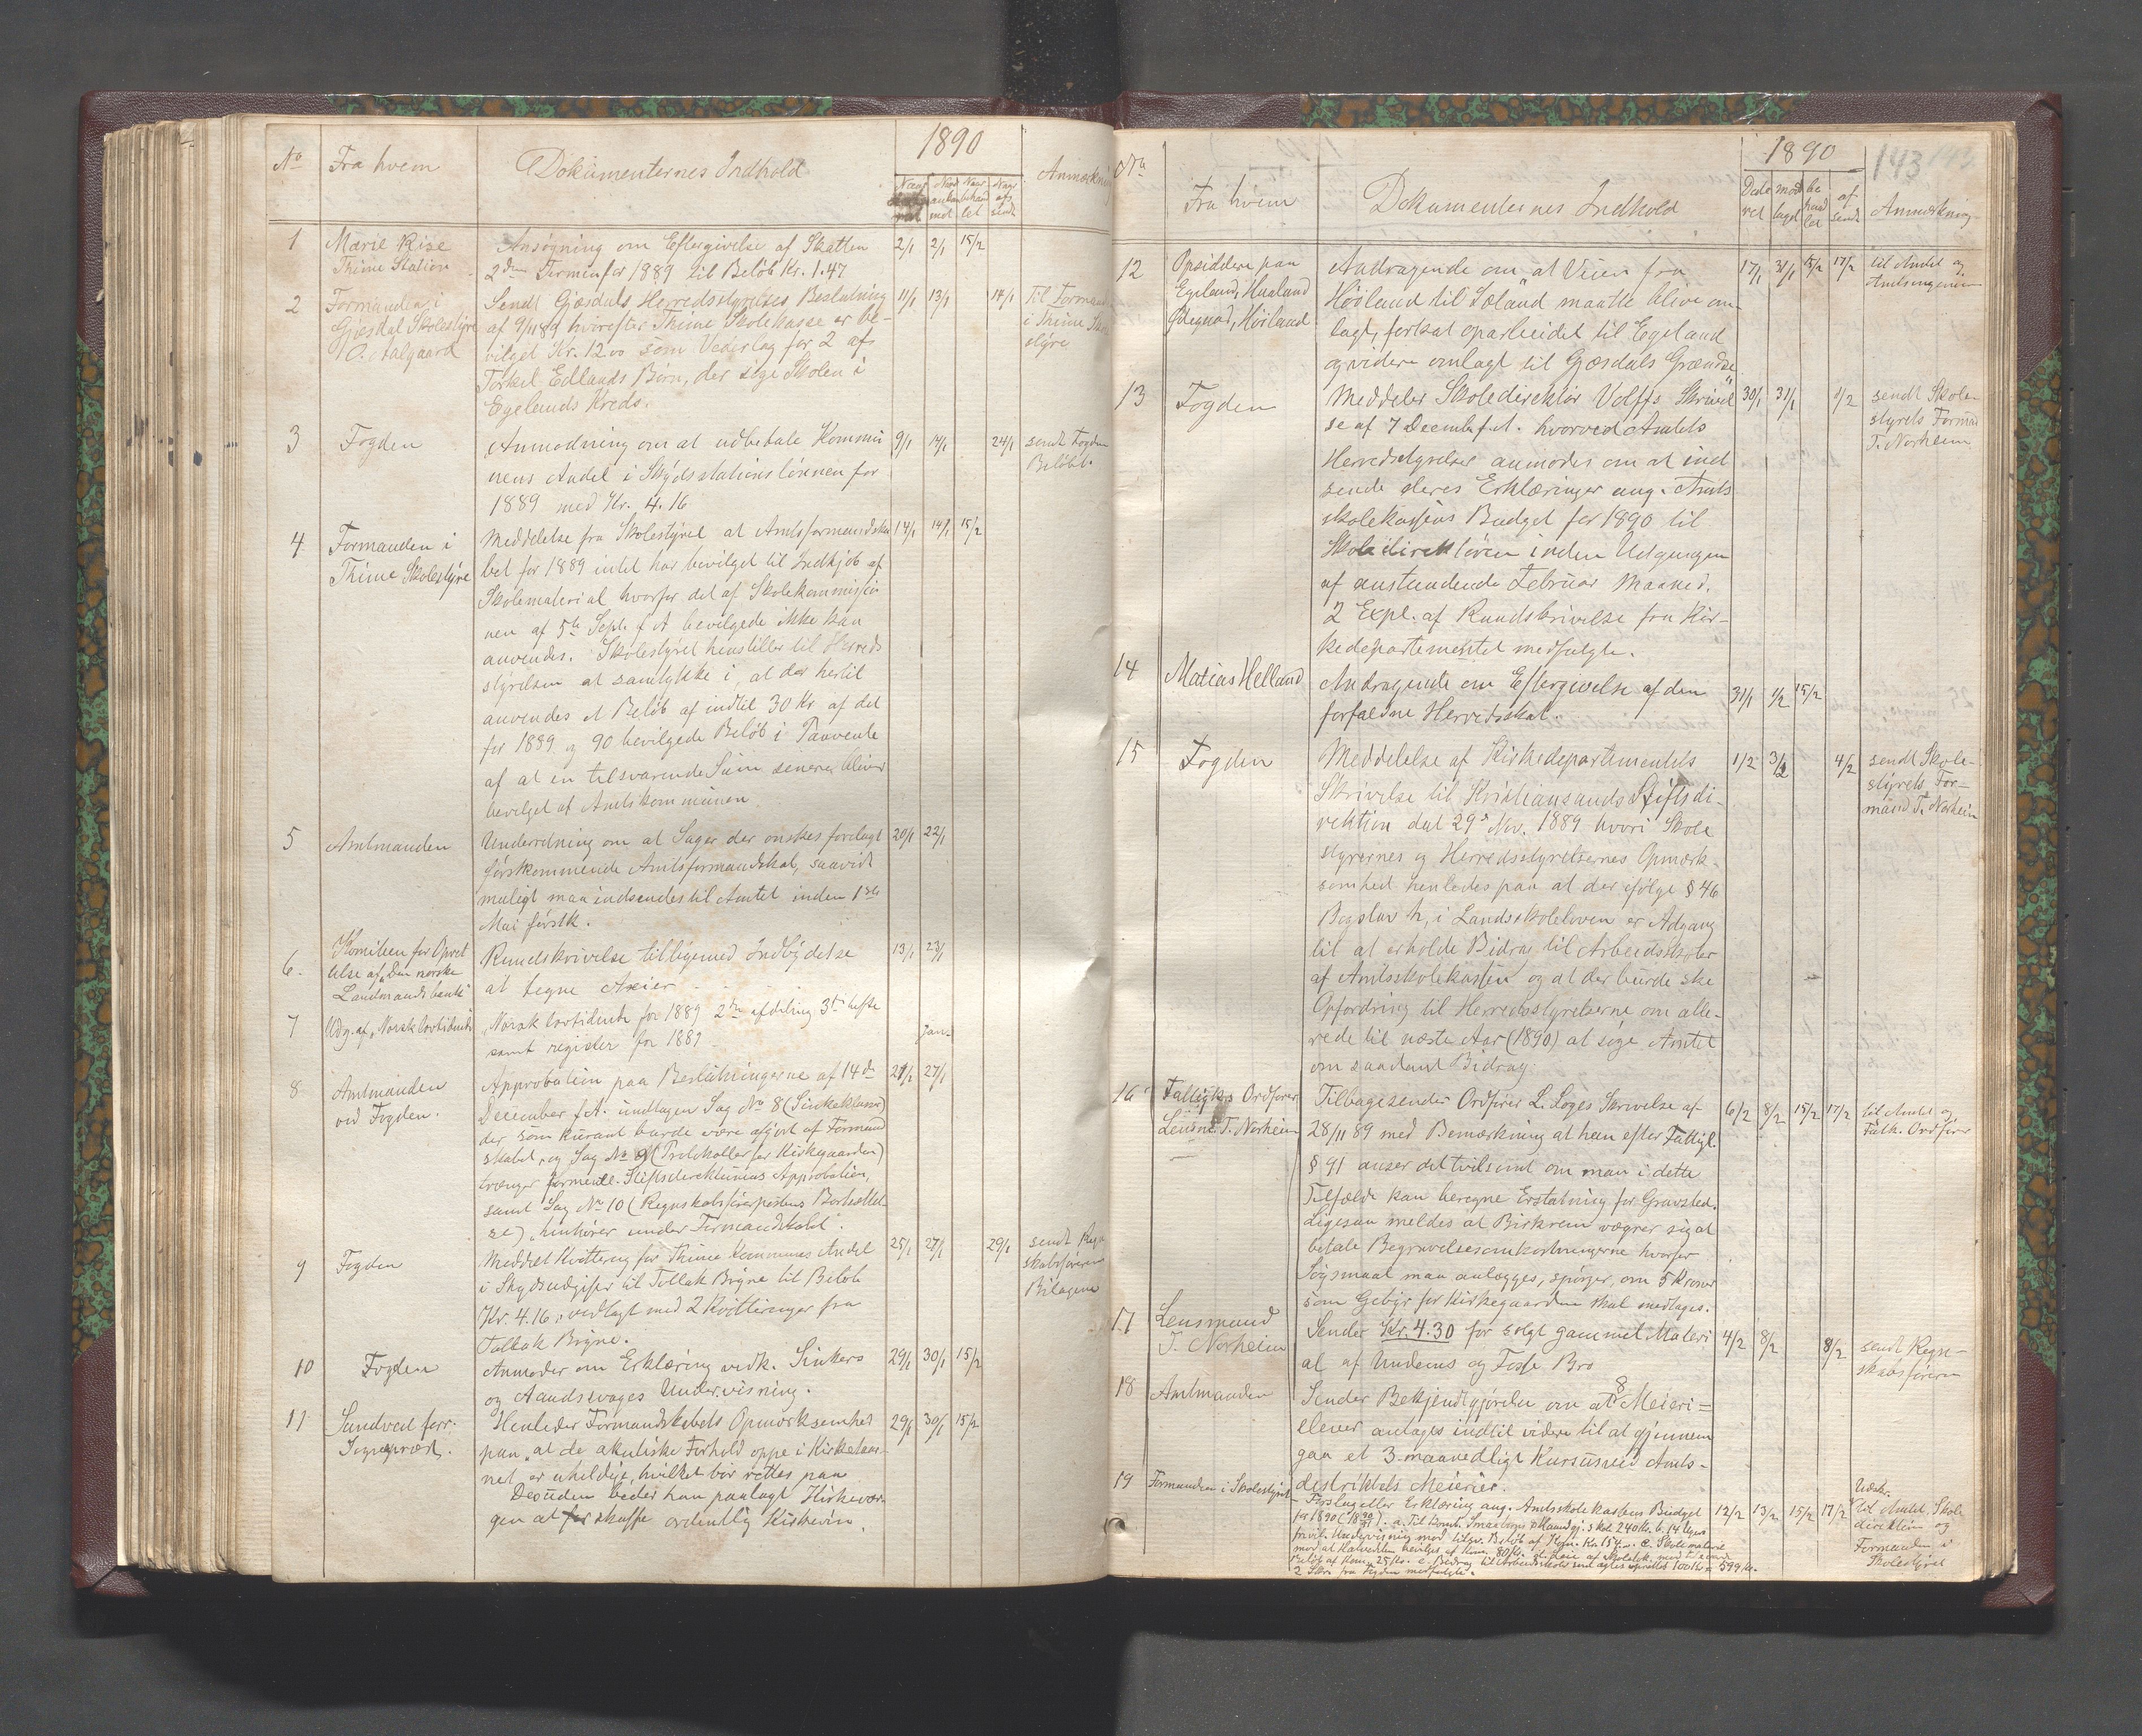 1890
No Fra hvem Dokumenternes Indhold Anmærkning
1 Marie Rise Ansøgning om Eftergivelse af Skatten 2/1 2/1 15/2
Thime Station 2den Termin for 1889 til Beløb Kr. 1.47
2 Formanden i Sendt Gjæsdals Herredsstyrelses Beslutning 11/1 13/1 14/1 Til Formand
Gjesdal Skolestyre af 9/11 89 hvorefter Thime Skolekasse er be- i Thime Skole
O. Aalgaard vilget Kr. 12.00 som Vederlag for 2 af styre
Torkel Edlands Børn, der søge Skolen i
Egelands Kreds.
3 Fogden Anmodning om at udbetale Kommu 9/1 14/1 24/1 sendt Fogden
nens Andel i Skydsstationslønnen for Beløbet.
1889 med Kr. 4.16
4 Formanden i Meddelelse fra Skolestyret at Amtsformandska 14/1 14/1 15/2
Thime Skolestyre bet for 1889 intet har bevilget til Indkjøb af
Skolemateriel hvorfor det af Skolekommissio
nen af 5te Sept. f A bevilgede ikke kan
anvendes. Skolestyret henstiller til Herreds
styrelsen at samtykke i, at der hertil
anvendes et Beløb af indtil 30 Kr af det
for 1889 og 90 bevilgede Beløb i Paavente
af at en tilsvarende Sum senere bliver
bevilget af Amtskommunen.
5 Amtmanden Underretning om at Sager der ønskes forelagt 20/1 22/1
førstkommende Amtsformandskab, saavidt
muligt maa indsendes til Amtet inden 1ste
Mai førstk.
6. Komiteen for Opret Rundskrivelse tilligemed Indbydelse 13/1 23/1
telse af "Den norske at tegne Axier
Landmandsbank"
7 Udg. af "Norsk lovtidende" "Norsk lovtidende for 1889 2den afdeling 3die hefte Jan.
samt register for 1889
8 Amtmanden Approbation paa Beslutningerne af 14de 21/1 27/1
ved Fogden. December f.A. undtagen Sag No 8 (Sinkeklasser)
der som kurant burde være afgjort af Formand
skabet, og Sag No 9 (Protokoller for Kirkegaarden)
trænger formentl. Stiftsdirektionens Approbation,
samt Sag No 10 (Regnskabsførerpostens Bortsættel-
se) "henhører under Formandskabet".
9 Fogden Meddelt Kvittering for Thime Kommunes Andel 25/1 27/1 29/1 sendt Regn
i Skydsudgifter til Tollak Bryne til Beløb skabsføreren
Kr. 4.16, vedlagt med 2 Kvitteringer fra Bilagene
Tollak Bryne.
10 Fogden Anmoder om Erklæring vedk. Sinkers 29/1 30/1 15/2
og Aandssvages Undervisning.
11 Sandved forr. Henleder Formandskabets Opmærksomhed 29/1 30/1 15/2
Sogneprest. paa, at de akustiske Forhold oppe i Kirketaar-
net er uheldige, hvilket bør rettes paa
Desuden beder han paalagt Kirkevær-
gen at skaffe ordentlig Kirkevin.
1890 143
No Fra hvem Dokumenternes Indhold Date ret mod taget be hand let af sendt Anmærkning
12 Opsiddere paa Andragende om at Veien fra 17/1 31/1 15/2 17/2 til Amtet og
Egeland, Hualand Høiland til Sæland maatte blive om Amtsingeniør
Ødegaard, Høiland lagt, forsat oparbeidet til Egeland
og videre omlagt til Gjæsdals Grændse
13 Fogden Meddeler Skoledirektør Volffs Skrivel 30/1 31/1 1/2 sendt Skole
se af 7 Decemb. f.A. hvorved Amtets styrets Formand
Herredsstyrelser anmodes om at ind T. Norheim
sende deres Erklæringer ang. Amts
skolekassens Budget for 1890 til
Skoledirektøren inden Udgangen
af anstundende Februar Maaned.
2 Expl. af Rundskrivelse fra Kir-
kedepartementet medfulgte.
14 Matias Helland Andragende om Eftergivelse af den 31/1 1/2 15/2
forfaldne Herredsskat.
15 Fogden Meddelelse af Kirkedepartementets 1/2 3/2 4/2 sendt Skole-
Skrivelse til Kristiansands Stiftsdi- styrets For-
rektion dat 29 Nov. 1889 hvori Skole mand T. Norheim
styrernes og Herredsstyrelsernes Opmærk-
somhed henledes paa at der ifølge § 46
Bogstav h, i Landsskoleloven er Adgang
til at erholde Bidrag til Arbeidsskoler
af Amtsskolekassen og at der burde ske
Opfordring til Herredsstyrelserne om alle-
rede til næste Aar (1890) at søge Amtet
om saadant Bidrag.
16 Fattigk. Ordfører Tilbagesender Ordfører L. Loges Skrivelse af 6/2 8/2 15/2 17/2 til Amtet og
Lensm. T. Norheim 28/11 89 med Bemærkning at han efter Fattigl. Fattk. Ordfører
§ 91 anser det tvilsomt om man i dette
Tilfælde kan beregne Erstatning for Gravsted.
Ligesaa meldes at Birkrem vægrer sig at
betale Begravelsesomkostningerne hvorfor
Søgsmaal maa anlægges, spørger, om 5 Kroner
som Gebyr for Kirkegaarden skal medtages.
17 Lensmand Sender Kr. 4.30 for solgt gammel Materi 4/2 8/2 8/2 sendt Regn-
T. Norheim al af Undems og Fosse Bro skabsføreren
18 Amtmanden Sender Bekjendtgjørelse om at 8 Meieri-
elever antages indtil videre til at gjennem
gaa et 3 maanedligt Kursus ved Amts-
destriktets Meierier.
19 Formanden i Skolestyret Forslag eller Erklæring ang. Amtsskolekassens Budget 12/2 13/2 15/2 17/2 Udskr.
for 1890 (1890/91). til Amtet, Skole
direktøren og
Formanden i
Skolestyret
2 Skr. fra Fogden medfulgte. 599 Kr.